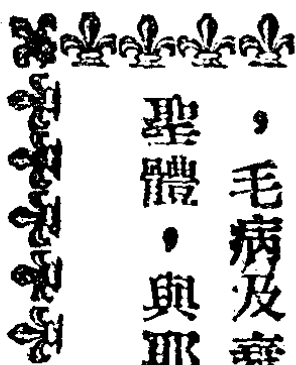 ，毛病及
聖體，與耶